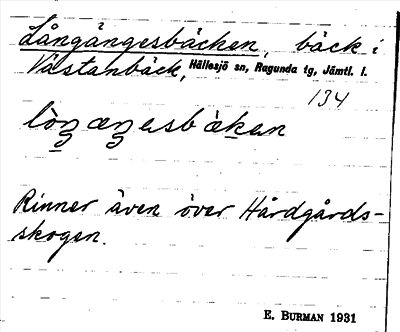 Långängesbäcken, bäck i
Västanbäck, Hällesjö sn, Ragunda tg, Jämtl. l.
134
Rinner även över Hårdgårds-
skogen.
E. BURMAN 1931